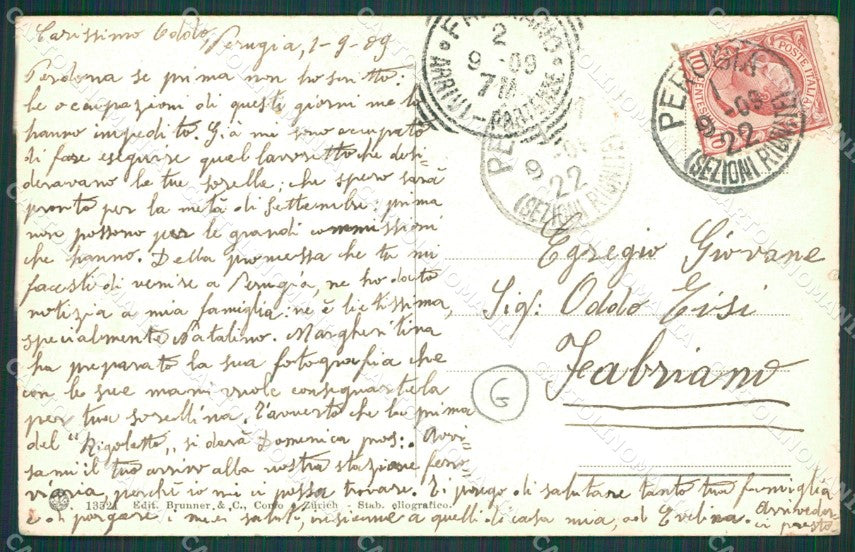 Carissimo Oddo,
Perugia, 1-9-09
Perdona se prima non ho scritto:
le occupazioni di questi giorni me lo
hanno impedito. Già mi sono occupato
di fare eseguire quel lavoretto che desi=
deravano le tue sorelle, che spero sarà
pronto per la metà di Settembre: prima
non possono per le grandi commissioni
che hanno. Della promessa che tu mi
facesti di venire a Perugia, ne ho dato
notizia a mia famiglia: ne è lietissima,
specialmente Natalino. Margheritina
ha preparato la sua fotografia che
con le sue mani vuole consegnartela
per tua sorellina. T'avverto che la prima
del "Rigoletto", si darà Domenica pros:. Avvi=
sami il tuo arrivo alla nostra stazione ferro=
viaria, perchè io mi ci possa trovare. Ti prego di salutare tanto tua famiglia
e di porgere i miei saluti, insieme a quelli di casa mia, ad Evelina. Arrivederci
presto
13521 Edit. Brunner & C., Como e Zürich - Stab. eliografico.
FABRIANO
2
9-09
7M
ARRIVI-PARTENZE
PERUGIA
1
9-09
22
PERUGIA
1
9 09
22
(SEZIONI RIUNITE)
(SEZIONI RIUNITE)
POSTE ITALIANE
Egregio Giovane
Sig: Oddo Tisi
Fabriano
G
CARTOLINOMANIA